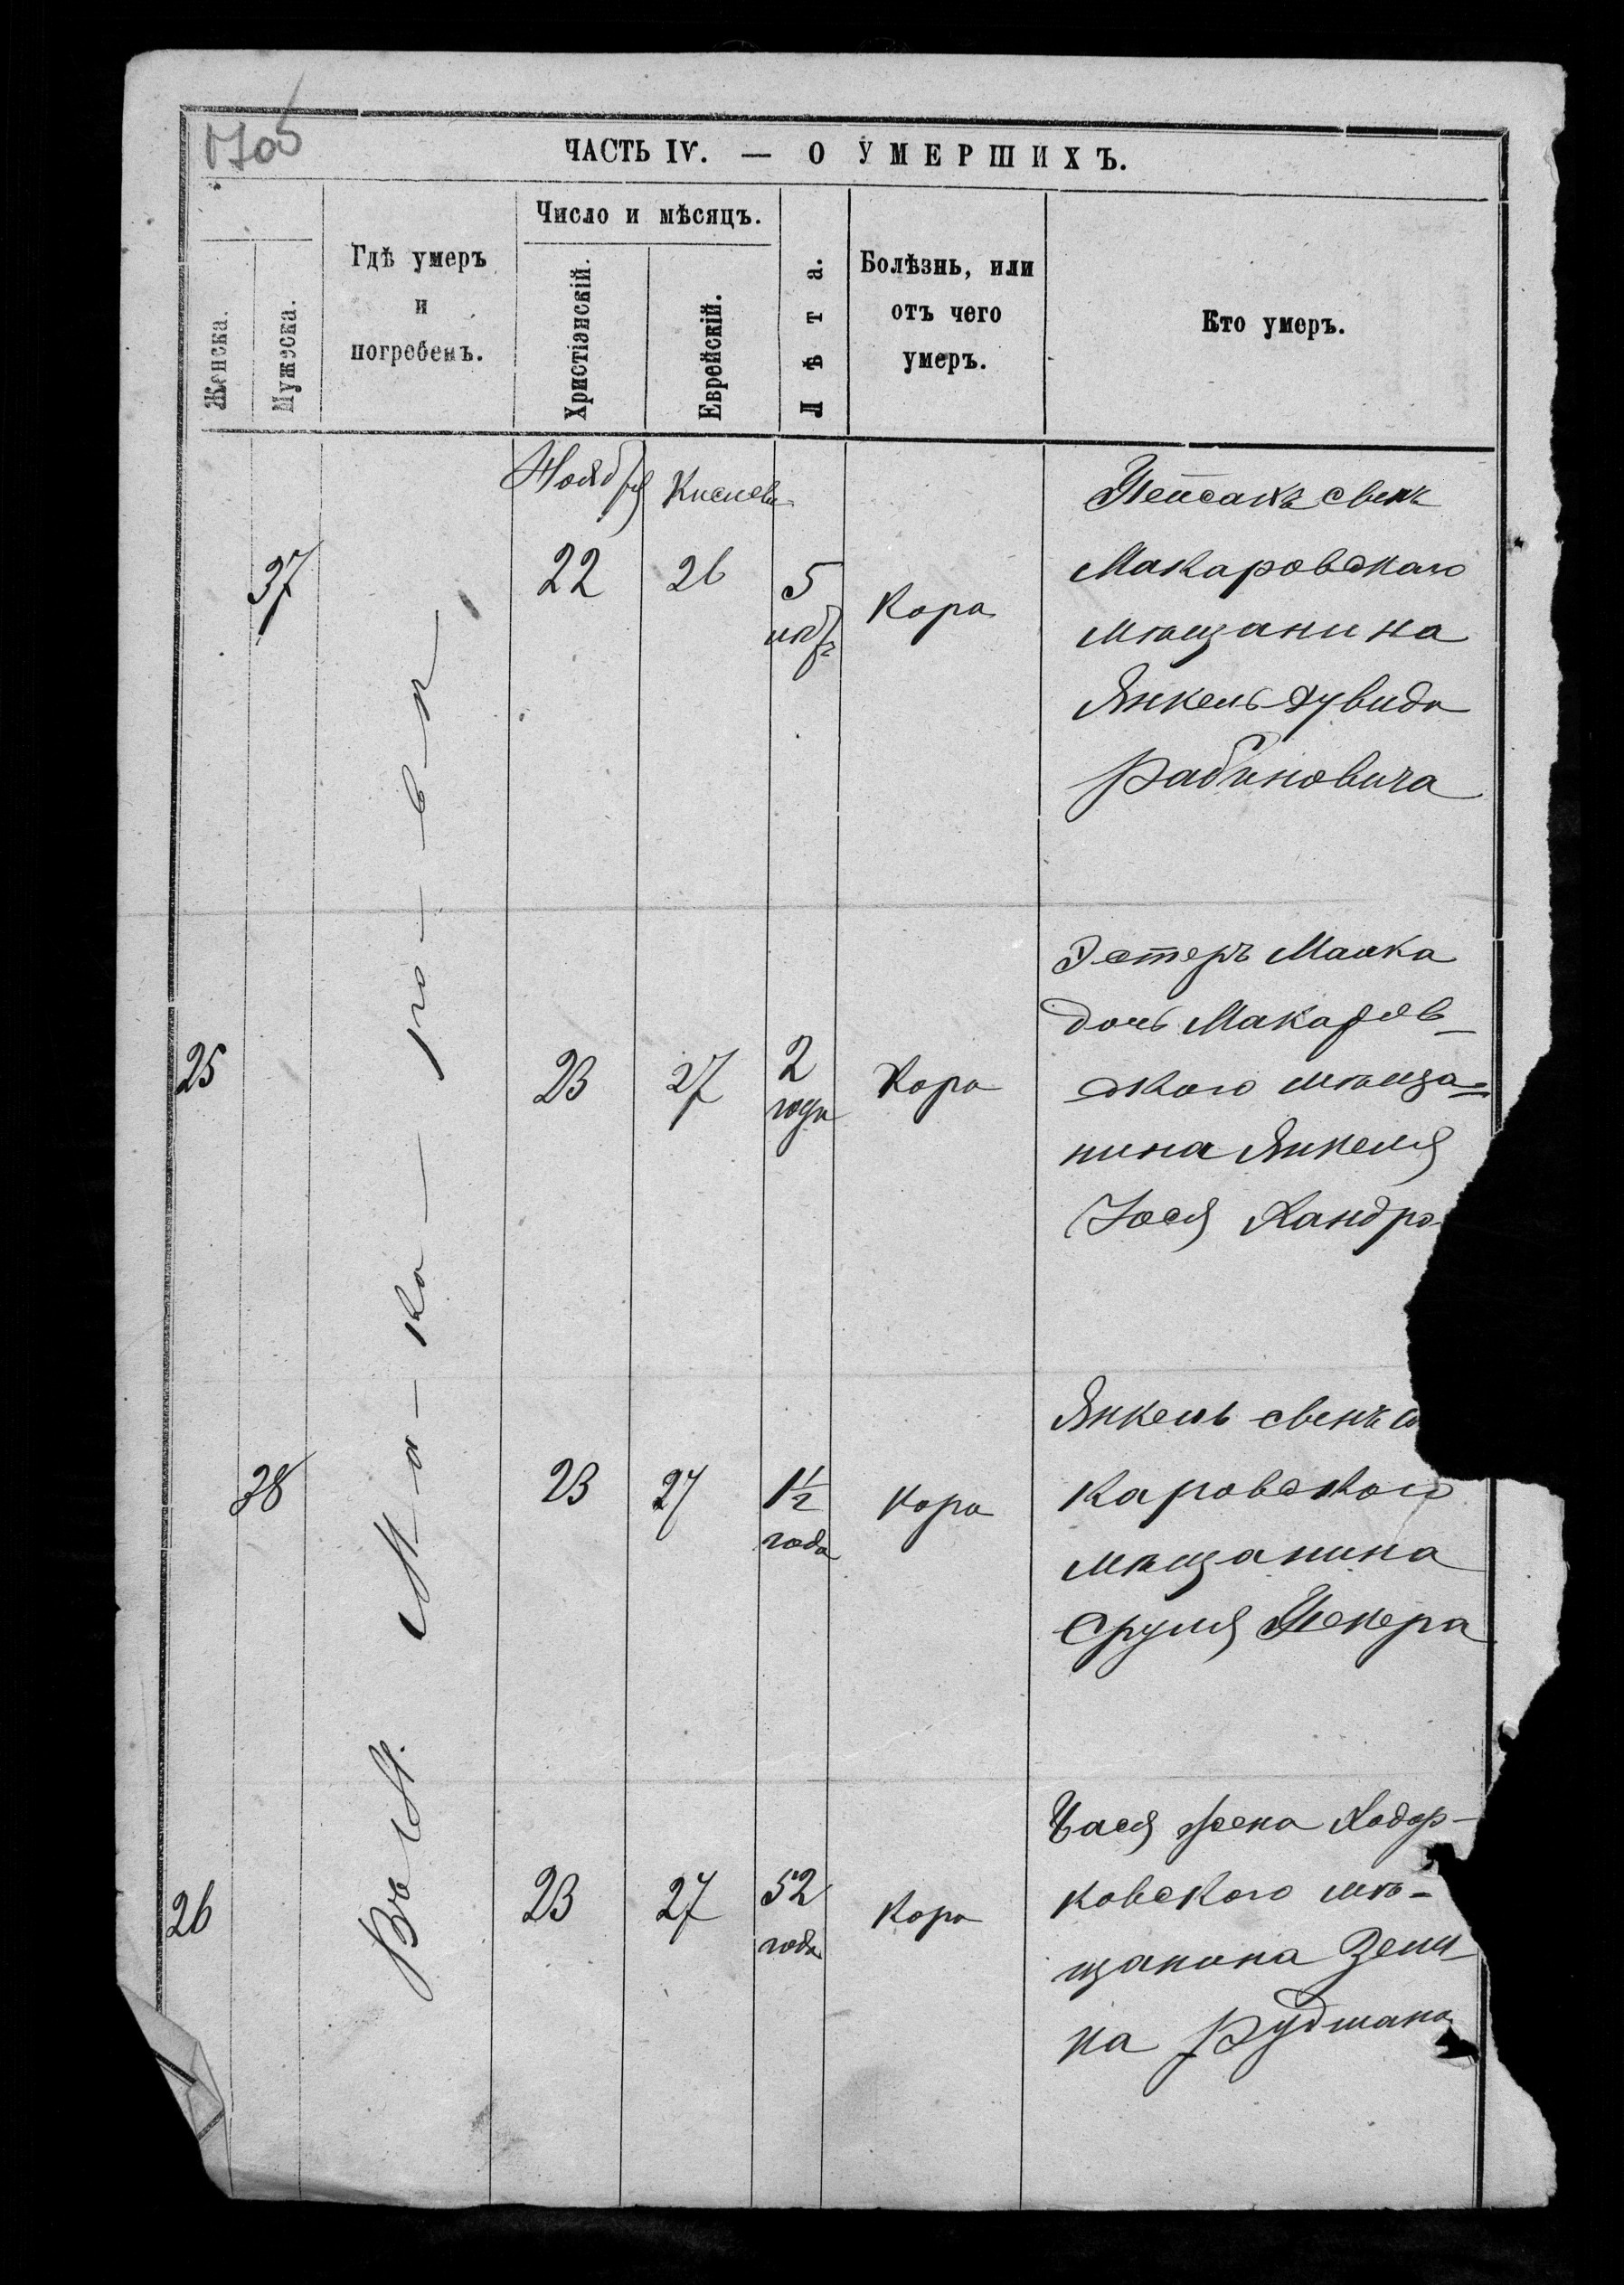 1705
ЧАСТЬ IV. — О УМЕРШИХЪ.
Женска.
Мужеска.
Гдѣ умеръ
и
погребенъ.
Число и мѣсяцъ.
Христіанскій.
Еврейскій.
Лѣта.
Болѣзнь, или
отъ чего
умеръ.
Кто умеръ.
Въ М. Ма-ка-ро-в-ѣ
Ноября
Кислева
37
22
26
5
Кора
Пейсахъ сынъ
Макаровскаго
мѣщанина
Янкель Дувида
Рабиновича
25
23
27
2
года
Кора
Эстеръ Малка
дочь Макаров-
скаго мѣща-
нина Янкеля
Іося Хандро
38
23
27
1½
года
Кора
Янкель сынъ
каровскаго
мѣщанина
Сруля Пекера
26
23
27
52
года
Кора
Чася жена Ходор-
ковскаго мѣ-
щанина Зели-
ка Рудмана